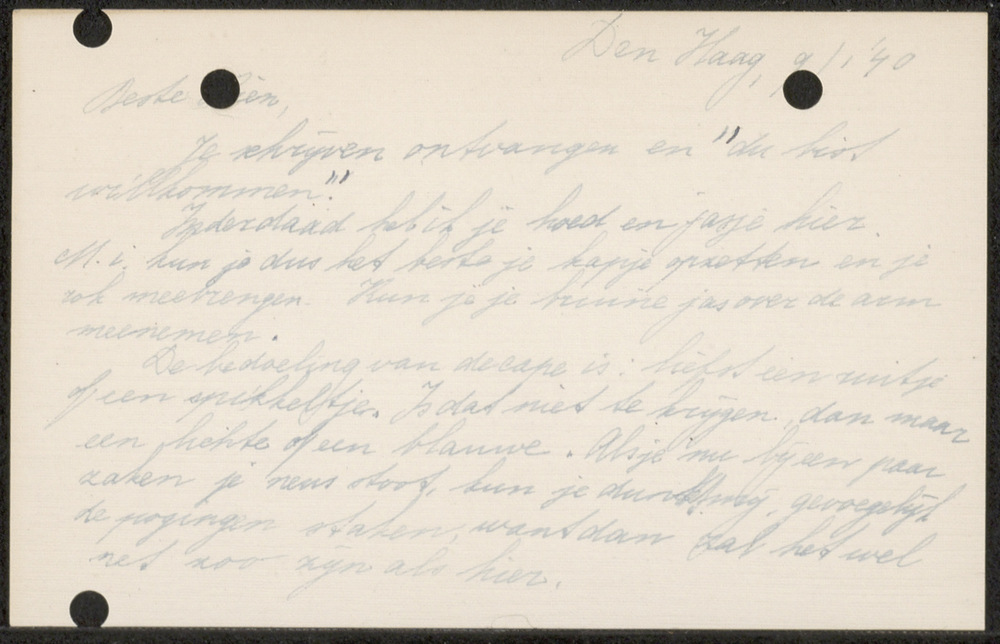 Den Haag, 9/1 '40
Beste Bien,
Je schrijven ontvangen en "du bist
willkommen".
Inderdaad heb ik je hoed en jasje hier.
M.i. kun je dus het beste je kapje opzetten en je
rok meebrengen. Kun je je bruine jas over de arm
meenemen.
De bedoeling van de cape is: liefst een ruitje
of een spikkeltje. Is dat niet te krijgen, dan maar
een lichte of een blauwe. Als je nu bij een paar
zaken je neus stoot, kun je dunkt mij, gevoegelijk
de pogingen staken, want dan zal het wel
net zoo zijn als hier.